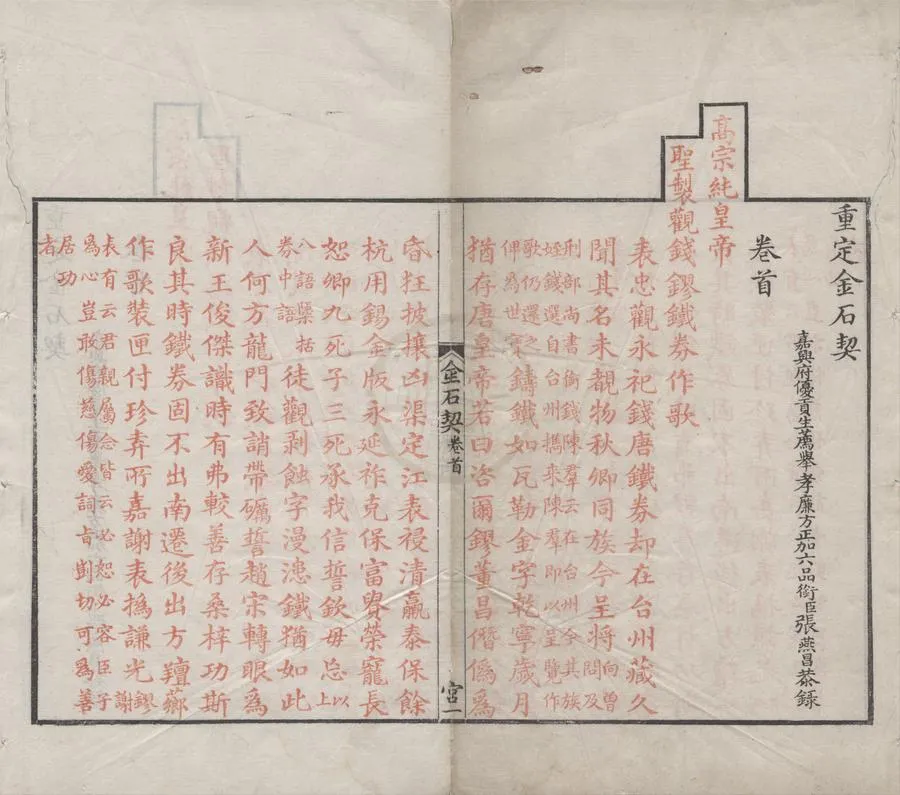 重定金石契
嘉興府優貢生薦舉孝廉方正加六品銜臣張燕昌恭錄
卷首
高宗純皇帝
聖製觀錢鏐鐵券作歌
表忠觀永祀錢唐鐵券却在台州藏久
聞其名未覩物秋卿同族今呈將向曾問及
刑部尚書銜錢陳羣云在台州令其族
姪錢選自台州攜來陳羣即以呈覽作
歌仍還之俾為世寳鑄鐵如瓦勒金字乾寧歲月
猶存唐皇帝若曰咨爾鏐董昌僭偽為
金石契 卷首 宮一
昏狂披攘凶渠定江表祲清羸泰保餘
杭用錫金版永延祚克保富貴榮寵長
恕卿九死子三死承我信誓欽毋忘以上
八語檃括券中語徒觀剥蝕字漫漶鐵猶如此
人何方龍門致誚帶礪誓趙宋轉眼為
新王俊傑識時有弗較善存桑梓功斯
良其時鐵券固不出南遷後出方羶薌
作歌裝匣付珍弆所嘉謝表撝謙光鏐謝
表有云君親屬念皆云必恕必容臣子
為心豈敢傷慈傷愛詞旨剴切可為善
居功
者